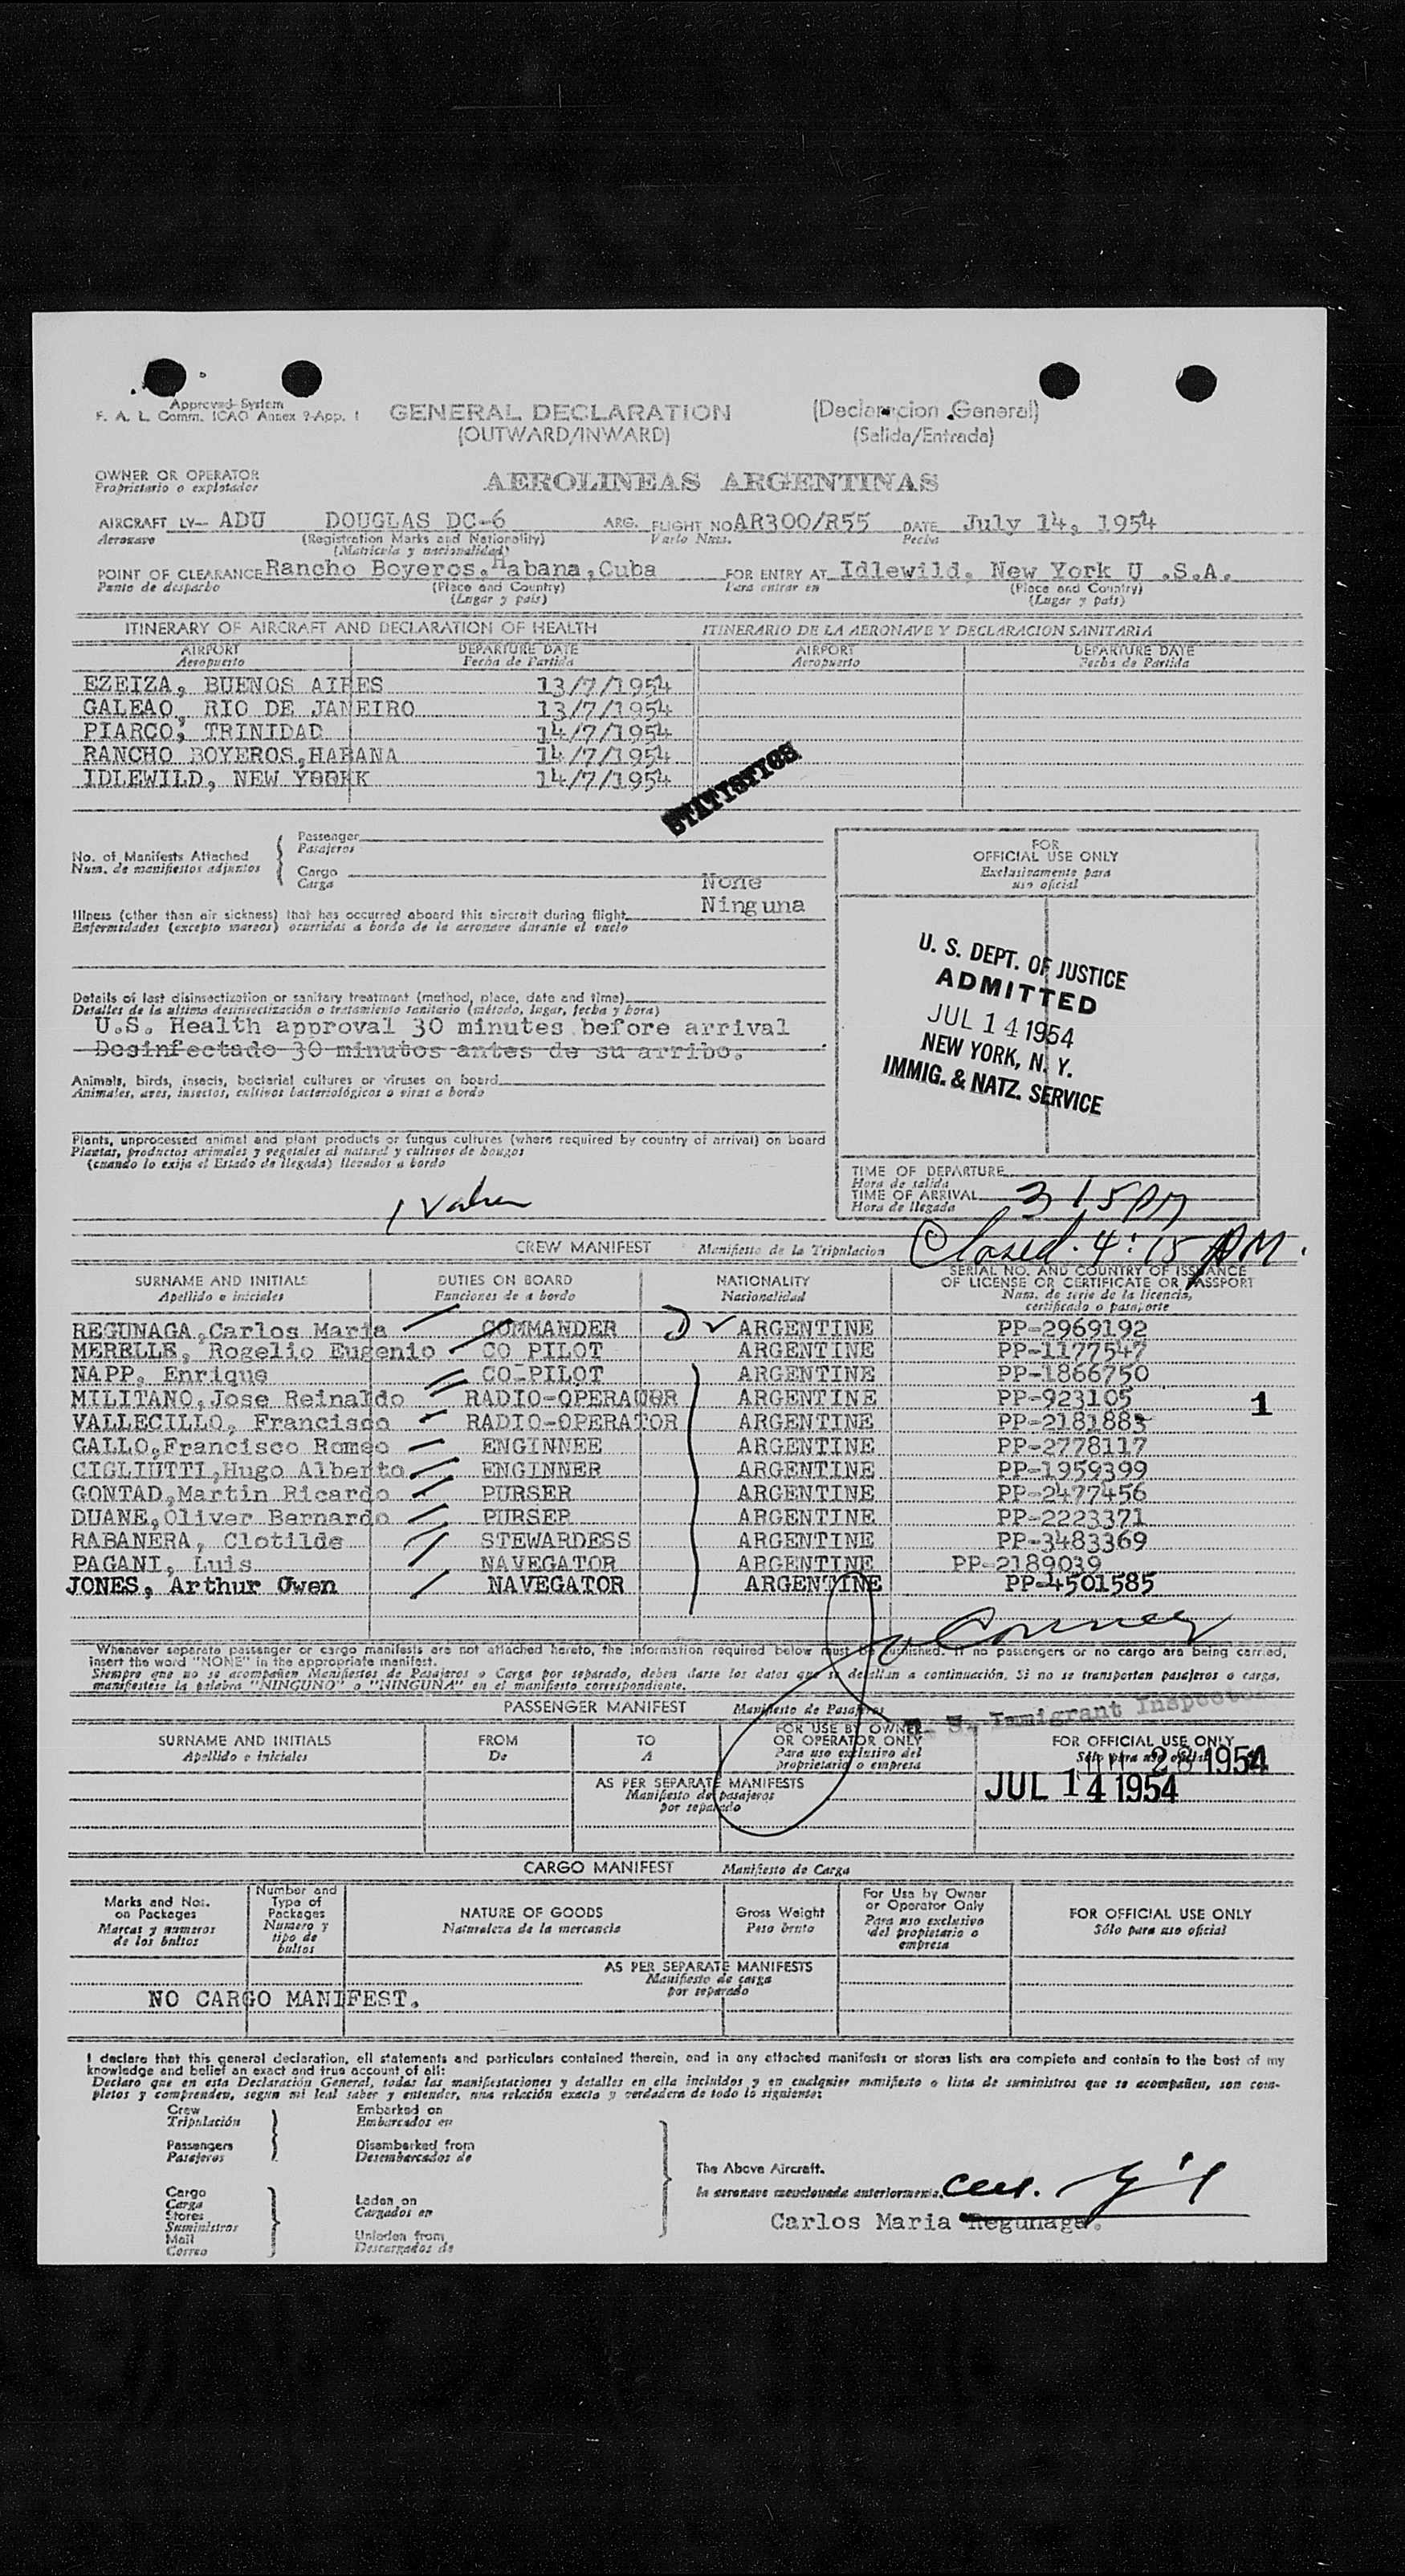 Approved System
F. A. L. Comm. ICAO Annex 9-App. 1
GENERAL DECLARATION
(Declaracion General)
(OUTWARD/INWARD)
(Salida/Entrada)
OWNER OR OPERATOR
Proprietario o explotador
AEROLINEAS ARGENTINAS
AIRCRAFT LV- ADU DOUGLAS DC-6 ARG. FLIGHT NO AR300/R55 DATE July 14, 1954
Aeronave (Registration Marks and Nationality) Vuelo Num. Fecha
(Matricula y nacionalidad)
POINT OF CLEARANCE Rancho Boyeros, Habana, Cuba FOR ENTRY AT Idlewild, New York U .S.A.
Punto de despacho (Place and Country) Para entrar en (Place and Country)
(Lugar y pais) (Lugar y pais)
ITINERARY OF AIRCRAFT AND DECLARATION OF HEALTH ITINERARIO DE LA AERONAVE Y DECLARACION SANITARIA
AIRPORT DEPARTURE DATE AIRPORT DEPARTURE DATE
Aeropuerto Fecha de Partida Aeropuerto Fecha de Partida
EZEIZA, BUENOS AIRES 13/7/1954
GALEAO, RIO DE JANEIRO 13/7/1954
PIARCO, TRINIDAD 14/7/1954
RANCHO BOYEROS,HABANA 14/7/1954
IDLEWILD, NEW YOORK 14/7/1954
STATISTICS
No. of Manifests Attached
Num. de manifiestos adjuntos
Passenger
Pasajeros
Cargo
Carga
None
Ninguna
Illness (other than air sickness) that has occurred aboard this aircraft during flight
Enfermedades (excepto mareos) ocurridas a bordo de la aeronave durante el vuelo
Details of last disinsectization or sanitary treatment (method, place, date and time)
Detalles de la ultima desinsectización o tratamiento sanitario (método, lugar, fecha y hora)
U.S. Health approval 30 minutes before arrival
Desinfectado 30 minutos antes de su arribo.
Animals, birds, insects, bacterial cultures or viruses on board
Animales, aves, insectos, cultivos bacteriológicos o virus a bordo
Plants, unprocessed animal and plant products or fungus cultures (where required by country of arrival) on board
Plantas, productos animales y vegetales al natural y cultivos de hongos
(cuando lo exija el Estado de llegada) llevados a bordo
FOR
OFFICIAL USE ONLY
Exclusivamente para
uso oficial
U. S. DEPT. OF JUSTICE
ADMITTED
JUL 14 1954
NEW YORK, N. Y.
IMMIG. & NATZ. SERVICE
TIME OF DEPARTURE
Hora de salida
TIME OF ARRIVAL 3 15 PM
Hora de llegada
Closed. 4:15 PM.
CREW MANIFEST Manifiesto de la Tripulacion
SURNAME AND INITIALS DUTIES ON BOARD NATIONALITY SERIAL NO. AND COUNTRY OF ISSUANCE
OF LICENSE OR CERTIFICATE OR PASSPORT
Apellido e iniciales Funciones de a bordo Nacionalidad Num. de serie de la licencia,
certificado o pasaporte
REGUNAGA,Carlos Maria COMMANDER ARGENTINE PP-2969192
MERELLE, Rogelio Eugenio CO PILOT ARGENTINE PP-1177547
NAPP, Enrique CO-PILOT ARGENTINE PP-1866750
MILITANO,Jose Reinaldo RADIO-OPERADOR ARGENTINE PP-923105 1
VALLECILLO, Francisco RADIO-OPERATOR ARGENTINE PP-2181883
GALLO,Francisco Romeo ENGINNEE ARGENTINE PP-2778117
CIGLIUTTI,Hugo Alberto ENGINNER ARGENTINE PP-1959399
GONTAD,Martin Ricardo PURSER ARGENTINE PP-2477456
DUANE,Oliver Bernardo PURSER ARGENTINE PP-2223371
RABANERA, Clotilde STEWARDESS ARGENTINE PP-3483369
PAGANI, Luis NAVEGATOR ARGENTINE PP-2189039
JONES, Arthur Owen NAVEGATOR ARGENTINE PP-4501585
Whenever separate passenger or cargo manifests are not attached hereto, the information required below must be furnished. If no passengers or no cargo are being carried,
insert the word "NONE" in the appropriate manifest.
Siempre que no se acompañen Manifiestos de Pasajeros o Carga por separado, deben darse los datos que se detallan a continuación. Si no se transportan pasajeros o carga,
manifiestese la palabra "NINGUNO" o "NINGUNA" en el manifiesto correspondiente.
PASSENGER MANIFEST Manifiesto de Pasajeros
S. Immigrant Inspector
SURNAME AND INITIALS FROM TO FOR USE BY OWNER FOR OFFICIAL USE ONLY
OR OPERATOR ONLY
Apellido e iniciales De A Para uso exclusivo del Sólo para uso oficial
proprietario o empresa
28 1954
JUL 14 1954
AS PER SEPARATE MANIFESTS
Manifiesto de pasajeros
por separado
CARGO MANIFEST Manifiesto de Carga
Marks and Nos.
on Packages
Marcas y numeros
de los bultos
Number and
Type of
Packages
Numero y
tipo de
bultos
NATURE OF GOODS
Naturaleza de la mercancia
Gross Weight
Peso bruto
For Use by Owner
or Operator Only
Para uso exclusivo
del propietario o
empresa
FOR OFFICIAL USE ONLY
Sólo para uso oficial
AS PER SEPARATE MANIFESTS
Manifiesto de carga
por separado
NO CARGO MANIFEST.
I declare that this general declaration, all statements and particulars contained therein, and in any attached manifests or stores lists are complete and contain to the best of my
knowledge and belief an exact and true account of all:
Declaro que en esta Declaración General, todas las manifestaciones y detalles en ella incluidos y en cualquier manifiesto o lista de suministros que se acompañen, son com-
pletos y comprenden, segun mi leal saber y entender, una relación exacta y verdadera de todo lo siguiente:
Crew
Tripulación
Passengers
Pasajeros
Embarked on
Embarcados en
Disembarked from
Desembarcados de
Cargo
Carga
Stores
Suministros
Mail
Correo
Laden on
Cargados en
Unladen from
Descargados de
The Above Aircraft.
la aeronave mencionada anteriormente.
Carlos Maria Regunaga.